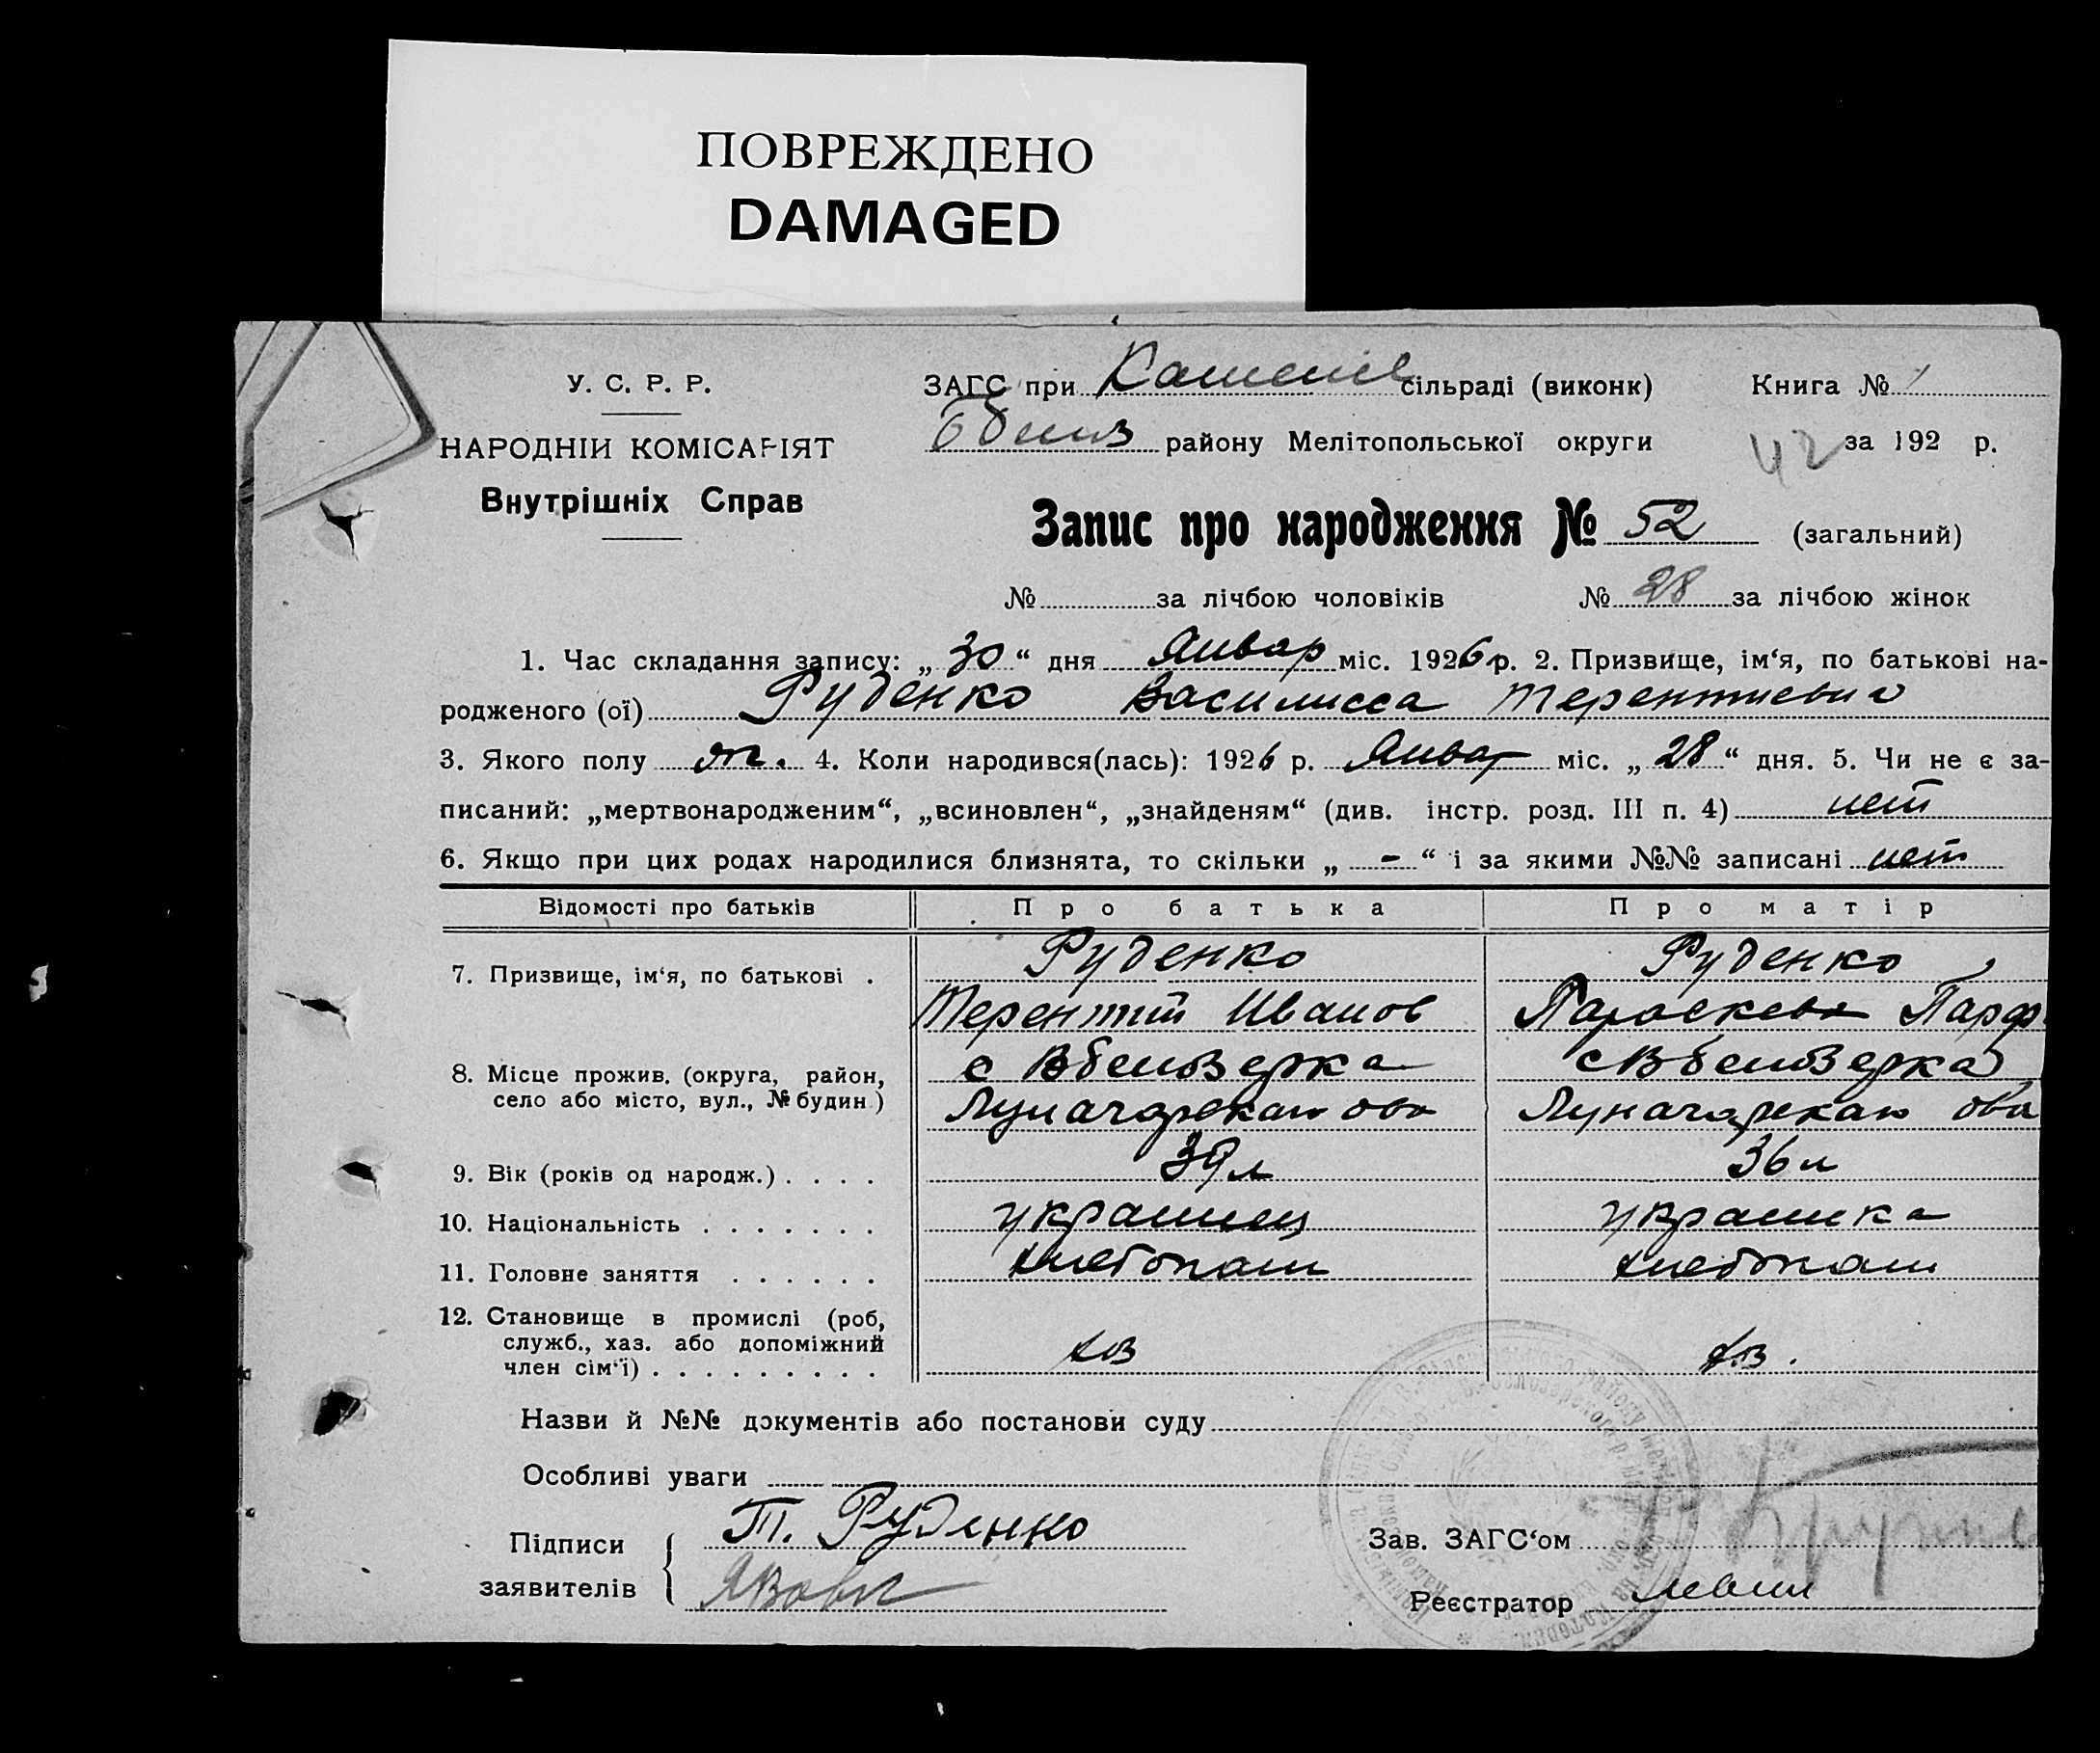 ПОВРЕЖДЕНО
DAMAGED
У. С. Р. Р.
НАРОДНІЙ КОМІСАРІЯТ
Внутрішніх Справ
ЗАГС при сільраді (виконк) Книга № 1
району Мелітопольської округи 42 за 192 р.
Запис про народження № 52 (загальний)
№ за лічбою чоловіків № 28 за лічбою жінок
1. Час складання запису: „ 30 “ дня Январ міс. 1926 р. 2. Призвище, ім‘я, по батькові на-
родженого (ої) Руденко Василисса Терентиевна
3. Якого полу ж. 4. Коли народився(лась): 1926 р. Январ міс. „ 28 “ дня. 5. Чи не є за-
писаний: „мертвонародженим“, „всиновлен“, „знайденям“ (див. інстр. розд. III п. 4) нет
6. Якщо при цих родах народилися близнята, то скільки „ - “ і за якими №№ записані нет
Відомості про батьків Про батька Про матір
7. Призвище, ім‘я, по батькові . Руденко Руденко
Терентий Иванов Параскева Парф
8. Місце прожив. (округа, район, с с
село або місто, вул., № будин.) Луначарская Луначарская
9. Вік (років од народж.) . . . . 39 л 36 л
10. Національність . . . . . . . украинец украинка
11. Головне заняття . . . . . . хлебопаш хлебопаш
12. Становище в промислі (роб,
служб., хаз. або допоміжний
член сім‘ї) . . . . . . . . . хоз хоз.
Назви й №№ документів або постанови суду
Особливі уваги
Підписи Т. Руденко Зав. ЗАГС‘ом
заявителів Реєстратор